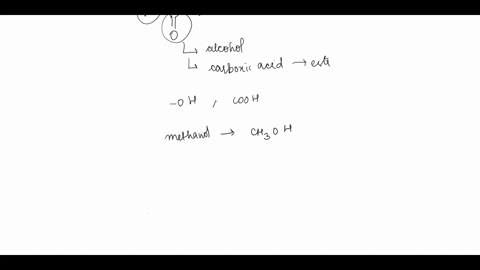 O
↳ alcohol
↳ carboxic acid → este
-OH, COOH
methanol → CH₃OH